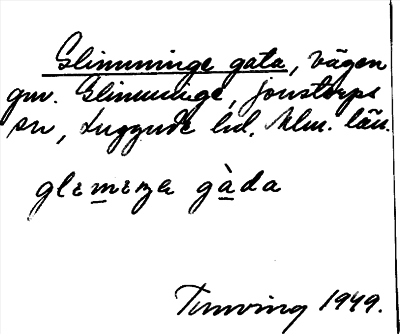 Glimminge gata, vägen
gm. Glimminge, Jonstorps
sn, Luggude hd. Mlm. län.
glemeŋe gàda
Tunving 1949.